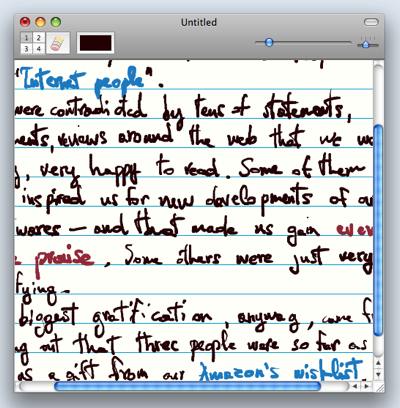 Untitled
1 2
3 4
"Internet people".
were contradicted by tens of statements,
ents, reviews around the web that we we
, very happy to read. Some of them
inspired us for new developments of ou
wares – and that made us gain even
praise, Some others were just very
fying.
biggest gratification, anyway, came f
ng out that three people were so far as
as a gift from our Amazon's wishlist